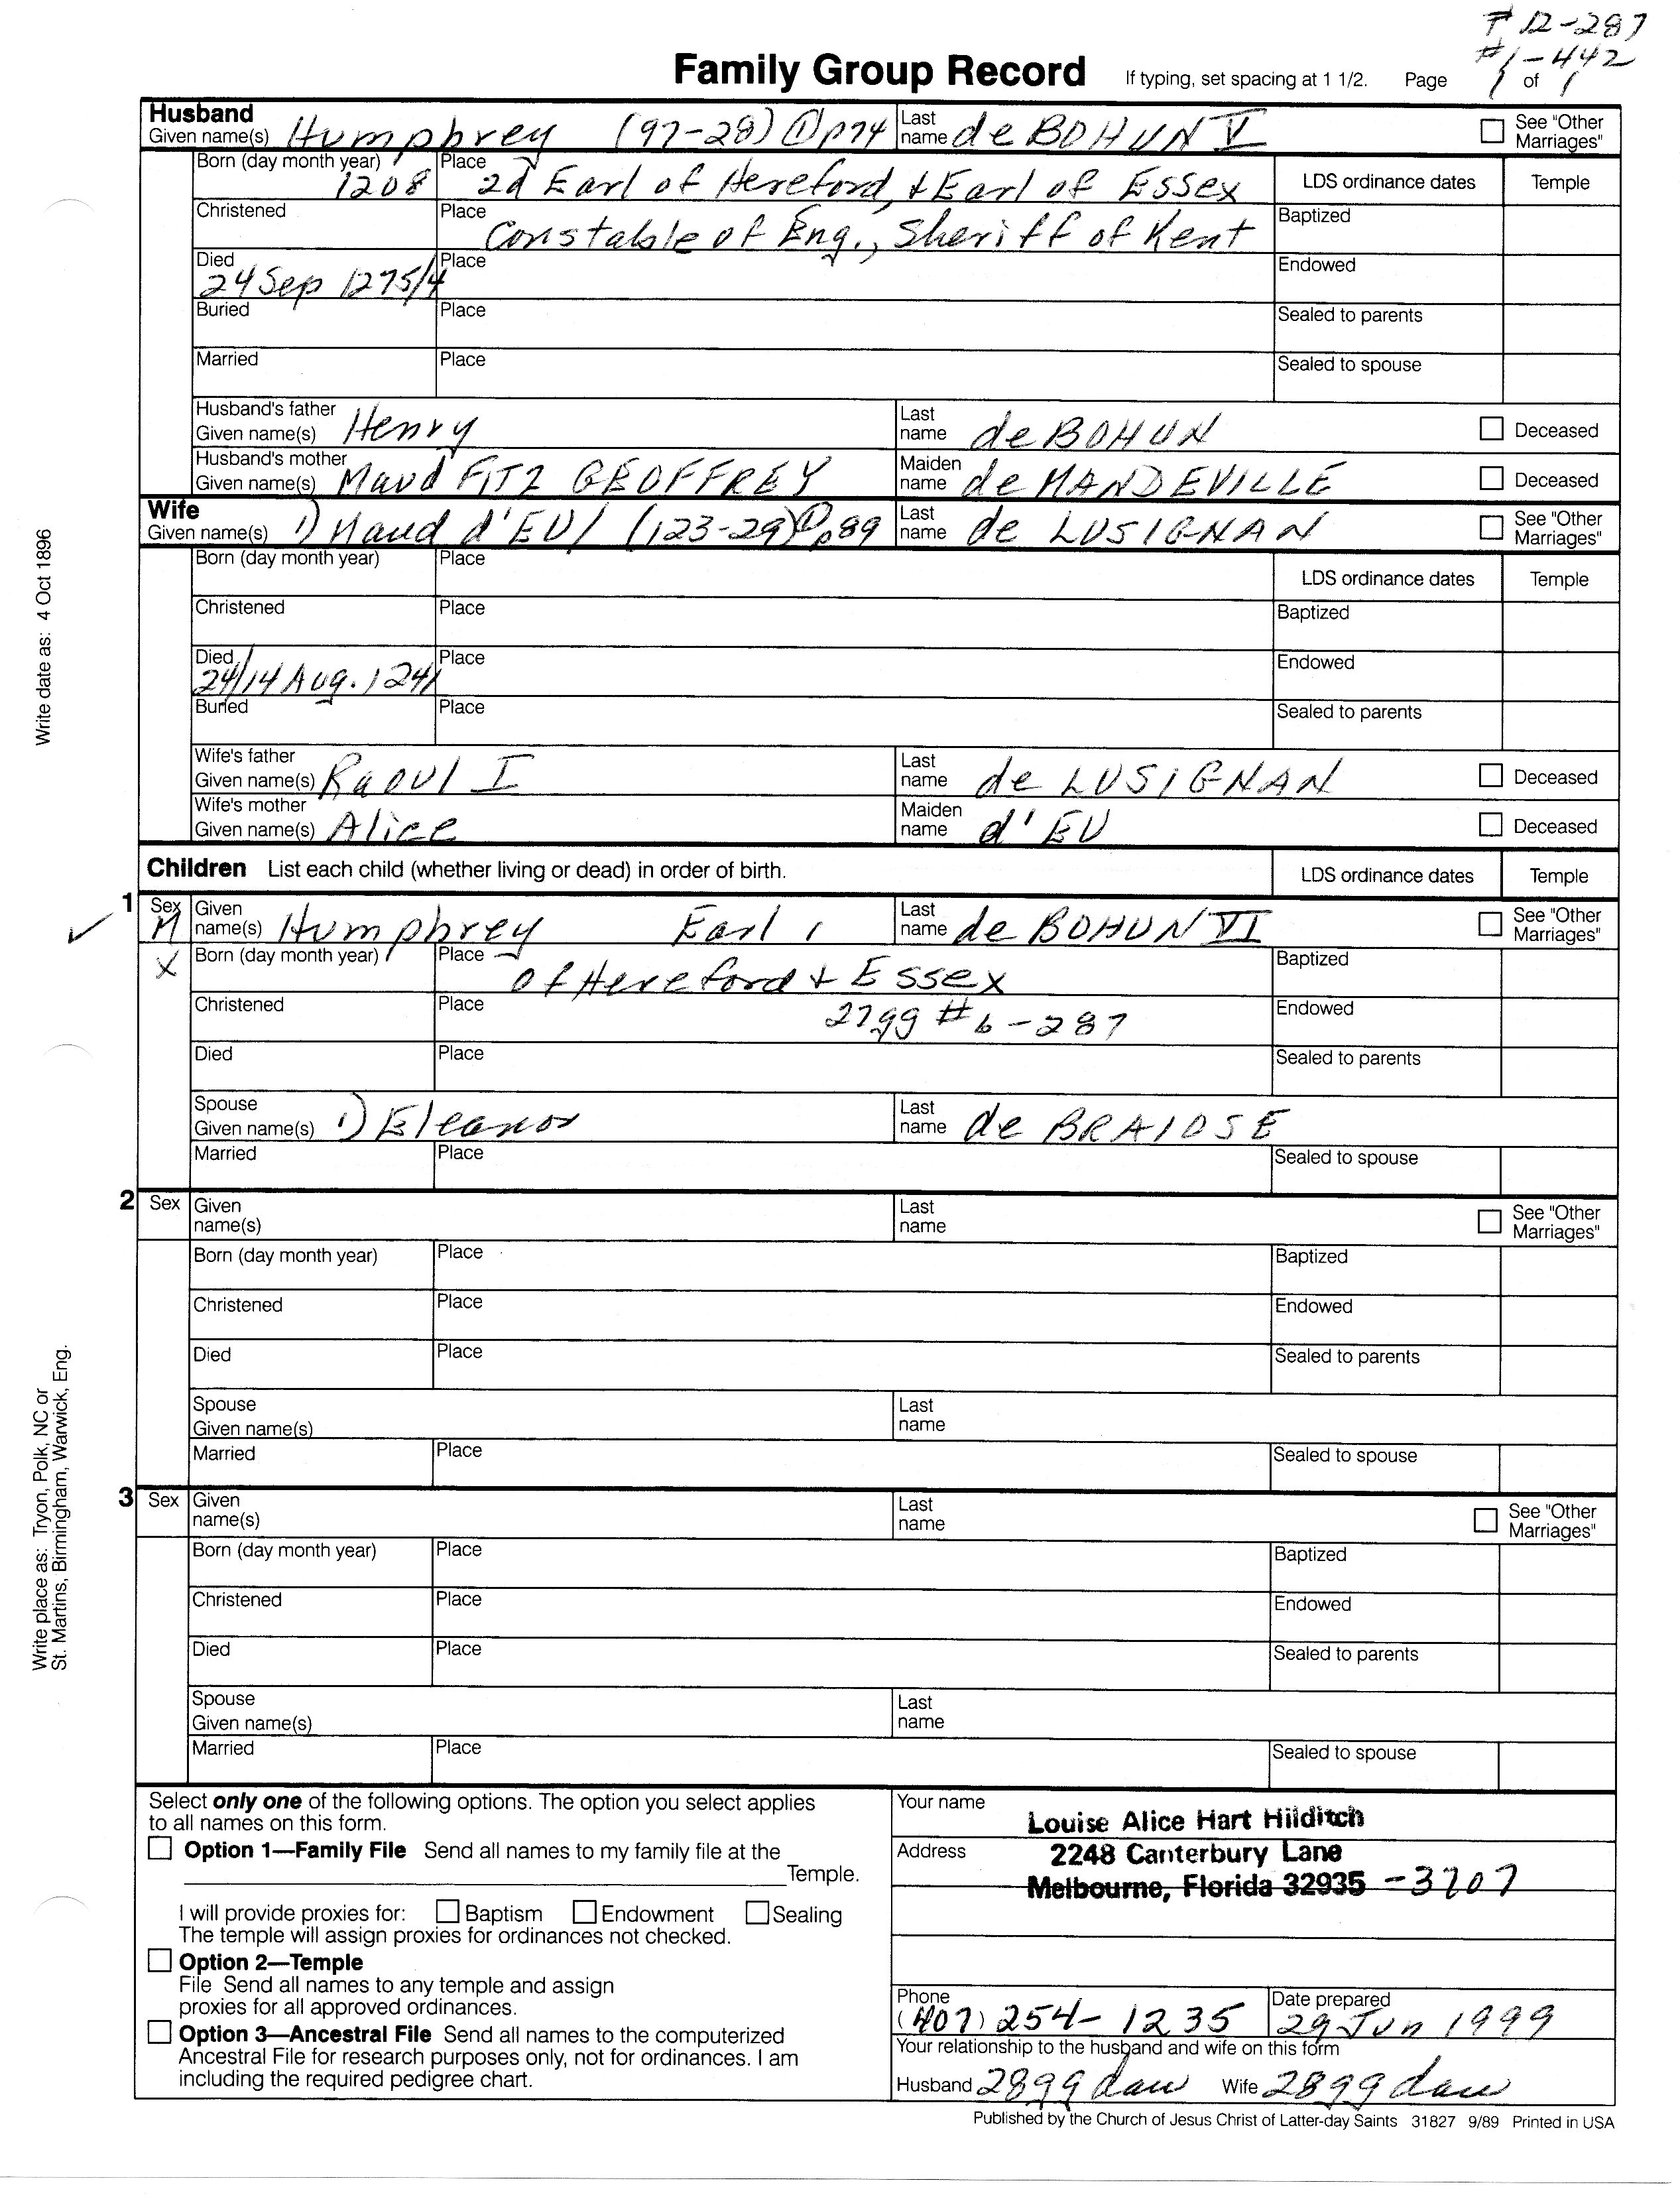 # 12-287
#1-442
Family Group Record If typing, set spacing at 1 1/2. Page 1 of 1
Husband
Given name(s) Humphrey (97-28) ① p74 Last name de BOHUN V See "Other Marriages"
Born (day month year) 1208 Place 2d Earl of Hereford, & Earl of Essex LDS ordinance dates Temple
Christened Place Constable of Eng., Sheriff of Kent Baptized
Died 24 Sep 1275/4 Place Endowed
Buried Place Sealed to parents
Married Place Sealed to spouse
Husband's father Given name(s) Henry Last name de BOHUN Deceased
Husband's mother Given name(s) Maud FITZ GEOFFREY Maiden name de MANDEVILLE Deceased
Wife
Given name(s) 1) Maud d'EU/ (123-29) ① p89 Last name de LUSIGNAN See "Other Marriages"
Born (day month year) Place LDS ordinance dates Temple
Christened Place Baptized
Died 24/14 Aug. 1241 Place Endowed
Buried Place Sealed to parents
Wife's father Given name(s) Raoul I Last name de LUSIGNAN Deceased
Wife's mother Given name(s) Alice Maiden name d'EU Deceased
Children List each child (whether living or dead) in order of birth. LDS ordinance dates Temple
1 Sex M Given name(s) Humphrey Earl Last name de BOHUN VI See "Other Marriages"
X Born (day month year) Place of Hereford & Essex Baptized
Christened Place 27gg #6-287 Endowed
Died Place Sealed to parents
Spouse Given name(s) 1) Eleanor Last name de BRAIOSE
Married Place Sealed to spouse
2 Sex Given name(s) Last name See "Other Marriages"
Born (day month year) Place Baptized
Christened Place Endowed
Died Place Sealed to parents
Spouse Given name(s) Last name
Married Place Sealed to spouse
3 Sex Given name(s) Last name See "Other Marriages"
Born (day month year) Place Baptized
Christened Place Endowed
Died Place Sealed to parents
Spouse Given name(s) Last name
Married Place Sealed to spouse
Write date as: 4 Oct 1896
Write place as: Tryon, Polk, NC or
St. Martins, Birmingham, Warwick, Eng.
Select only one of the following options. The option you select applies
to all names on this form.
Option 1—Family File Send all names to my family file at the
Temple.
I will provide proxies for: Baptism Endowment Sealing
The temple will assign proxies for ordinances not checked.
Option 2—Temple
File Send all names to any temple and assign
proxies for all approved ordinances.
Option 3—Ancestral File Send all names to the computerized
Ancestral File for research purposes only, not for ordinances. I am
including the required pedigree chart.
Your name Louise Alice Hart Hilditch
Address 2248 Canterbury Lane
Melbourne, Florida 32935 -3707
Phone (407) 254-1235 Date prepared 29 Jun 1999
Your relationship to the husband and wife on this form
Husband 28gg dau Wife 28gg dau
Published by the Church of Jesus Christ of Latter-day Saints 31827 9/89 Printed in USA